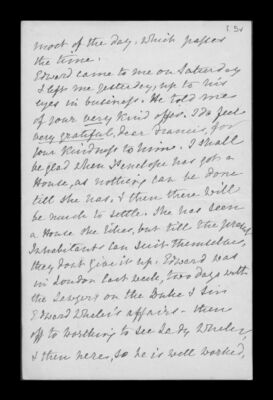 most of the day, which passes
the time.
Edward came to me on Saturday
& left me yesterday, up to his
eyes in business. He told me
of your very kind offer. I do feel
very grateful, dear Francis, for
your kindness to mine. I shall
be glad when Penelope has got a
House, as nothing can be done
till she has. & then there will
be much to settle. She has seen
a House she likes, but till the present
Inhabitants can suit themselves,
they dont give it up. Edward was
in London last week, two days with
the Lawyers on the Duke & Sir
Edward Wheler's affairs - then
off to Worthing to see Lady Wheler,
& then here, so he is well worked,